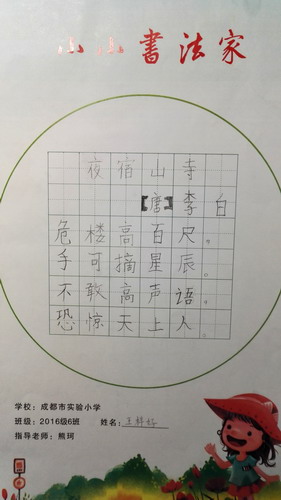 小小書法家
夜宿山寺
【唐】李白
危楼高百尺，
手可摘星辰。
不敢高声语，
恐惊天上人。
学校：成都市实验小学
班级：2016级6班 姓名：王梓
指导老师：熊珂